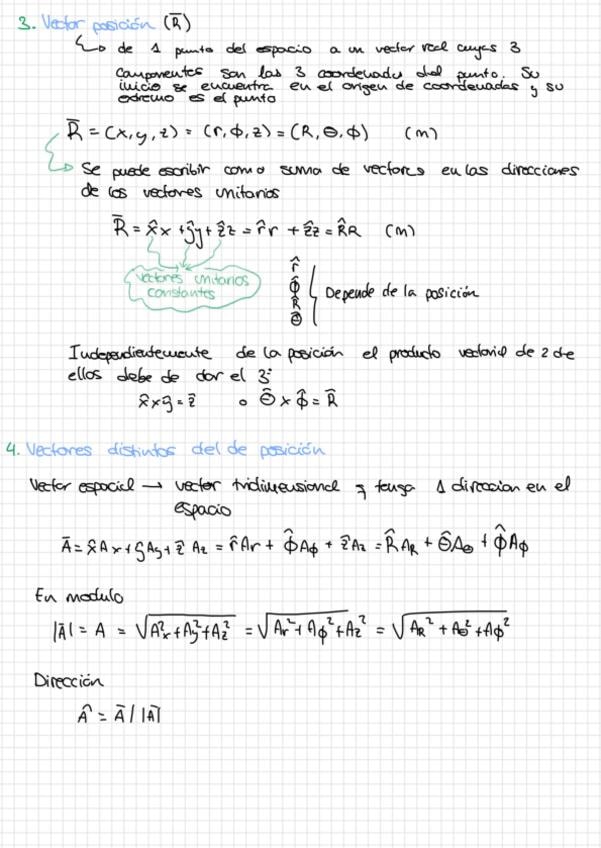 3. Vector posición (R̄)
de 1 punto del espacio a un vector real cuyas 3
componentes son las 3 coordenadas del punto. Su
inicio se encuentra en el origen de coordenadas y su
extremo es el punto
R̄ = (x, y, z) = (r, ϕ, z) = (R, Θ, ϕ) (m)
Se puede escribir como suma de vectores en las direcciones
de los vectores unitarios
R̄ = x̂x + ŷy + ẑz = r̂r + ẑz = R̂R (m)
vectores unitarios
constantes
r̂
ϕ̂
R̂
Θ̂
Depende de la posición
Independientemente de la posición el producto vectorial de 2 de
ellos debe de dar el 3º
x̂ x ŷ = ẑ o Θ̂ x ϕ̂ = R̂
4. Vectores distintos del de posición
Vector espacial → vector tridimensional q tenga 1 direccion en el
espacio
Ā = x̂Ax + ŷAy + ẑAz = r̂Ar + ϕ̂Aϕ + ẑAz = R̂AR + Θ̂AΘ + ϕ̂Aϕ
En modulo
|Ā| = A = √(Ax² + Ay² + Az²) = √(Ar² + Aϕ² + Az²) = √(AR² + AΘ² + Aϕ²)
Dirección
Â = Ā / |Ā|